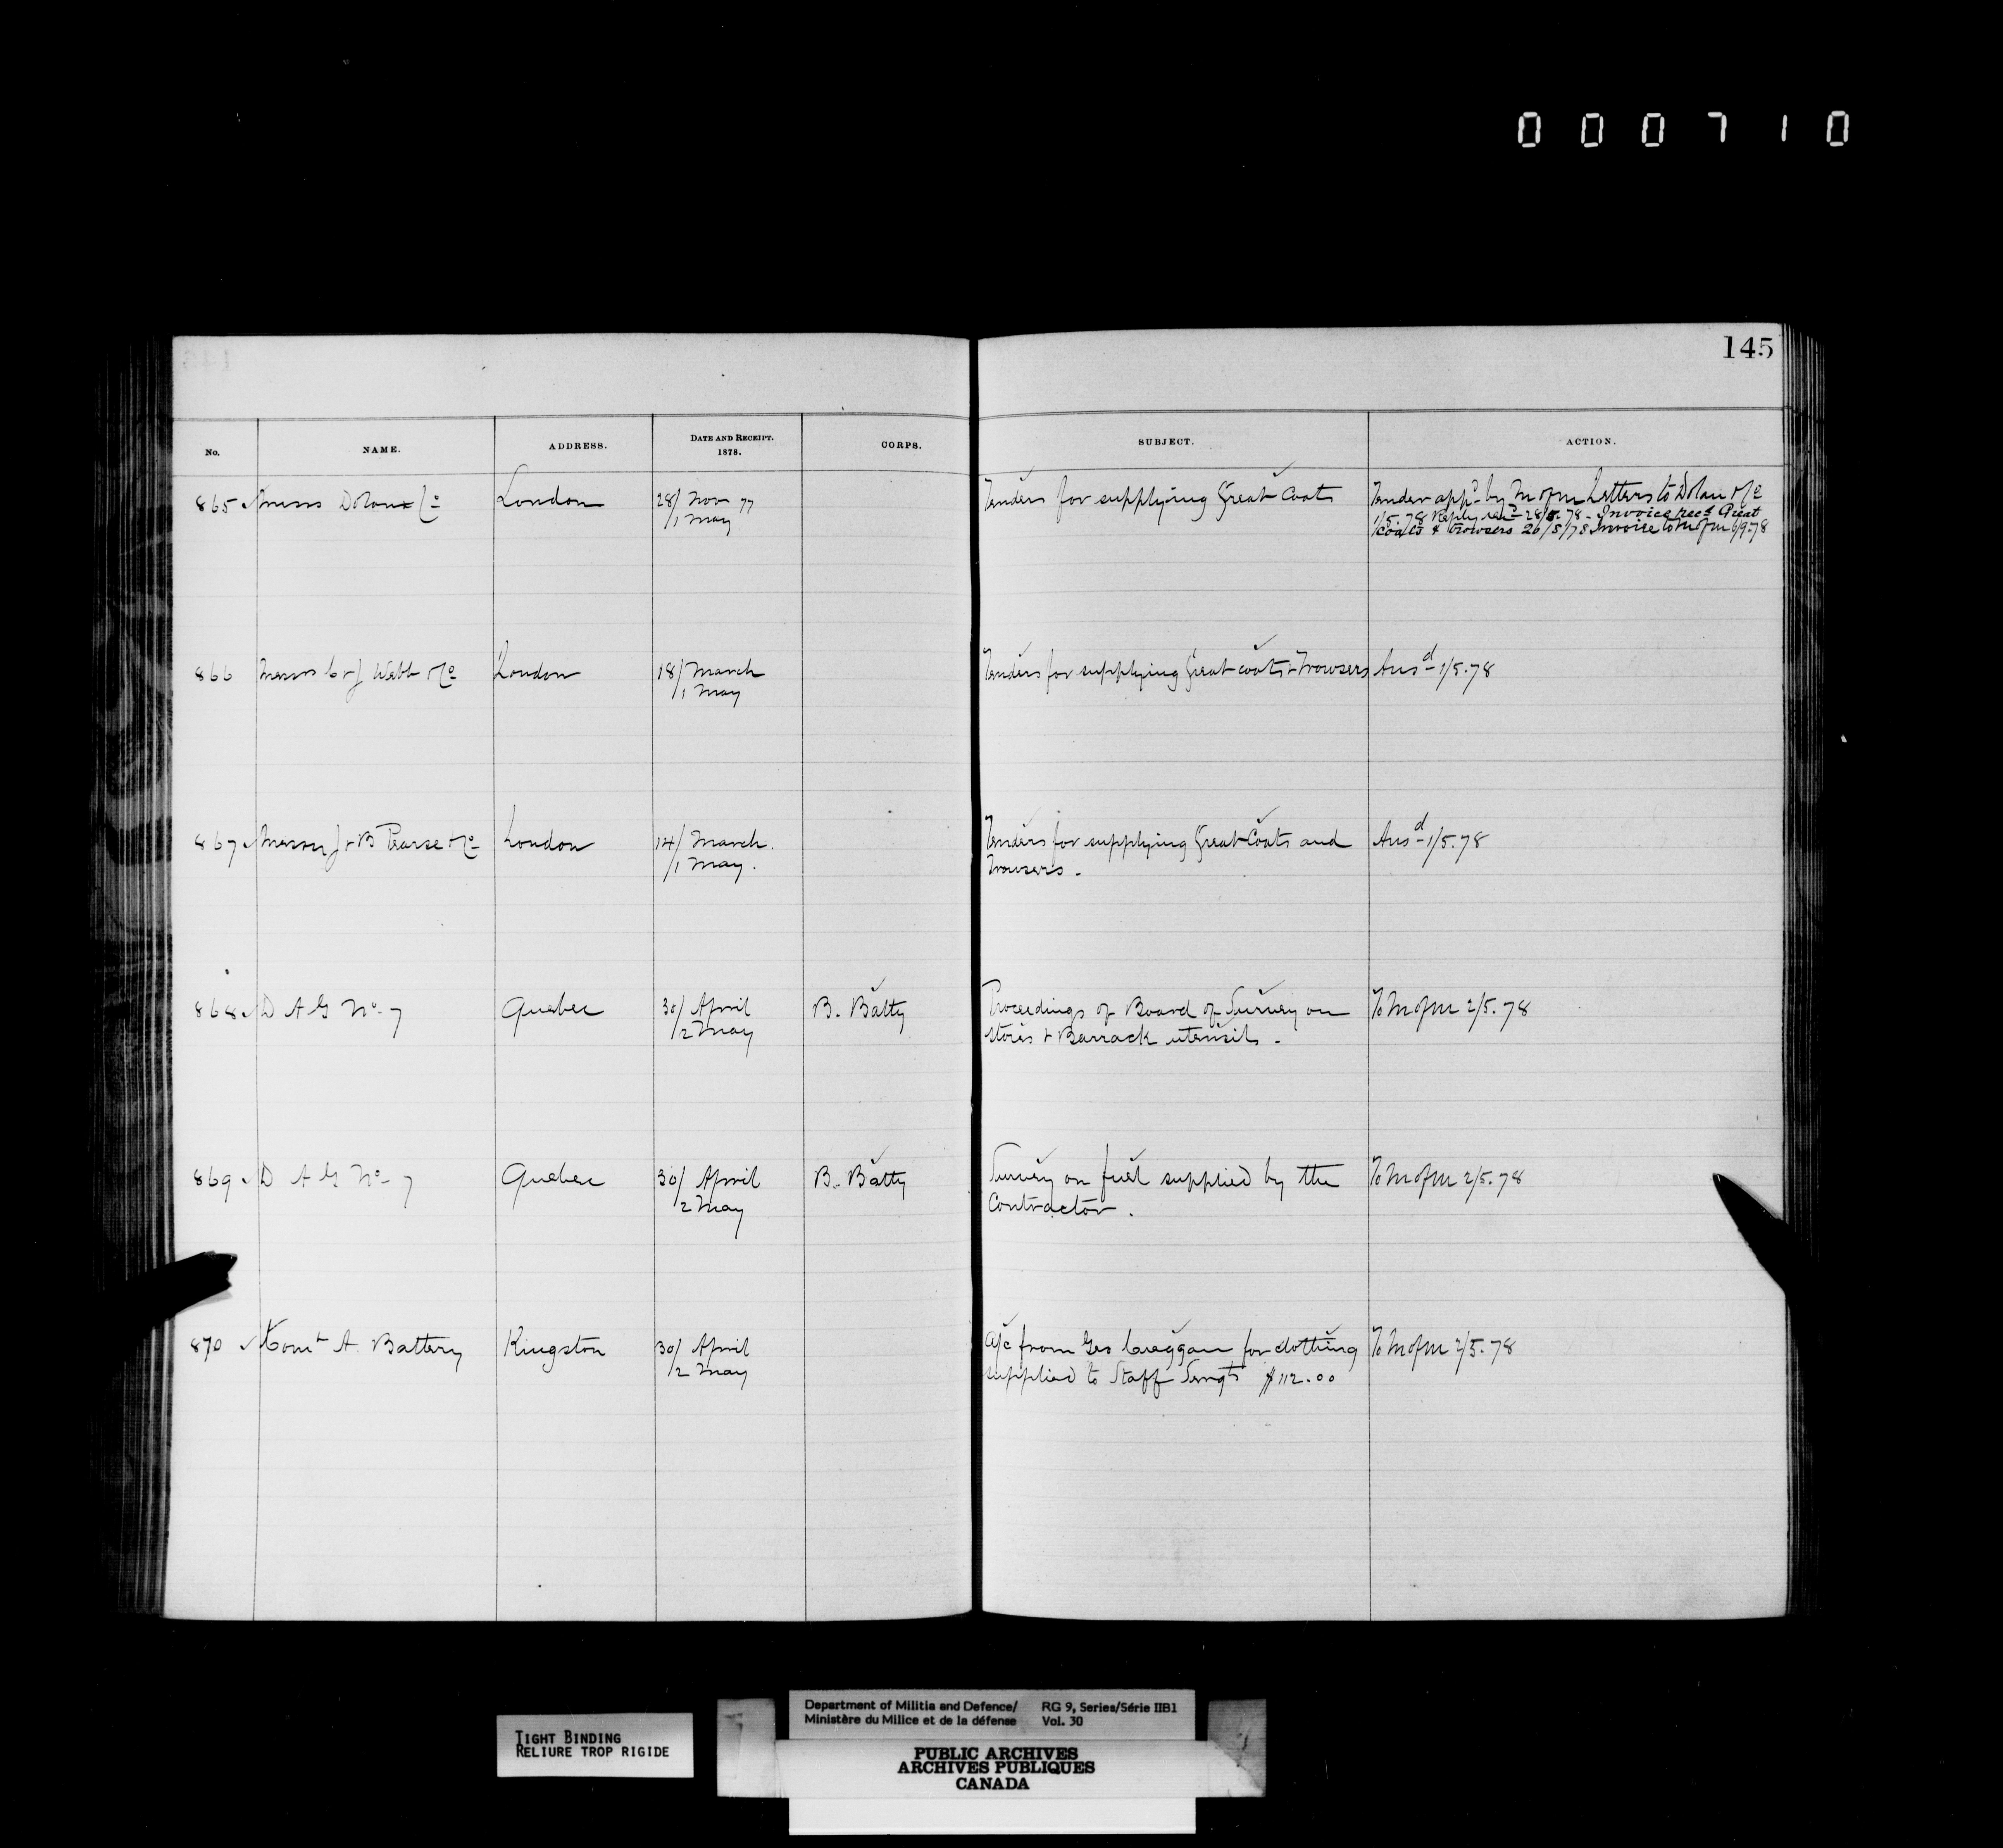 000710
145
No. NAME. ADDRESS. DATE AND RECEIPT. 1878. CORPS. SUBJECT. ACTION.
865 Messrs Dolan & Co London 28/ Nov 77 Tenders for supplying Great Coats Tender appd by M of M Letters to Dolan & Co
/1 May 1/5.78 Reply recd 28/5.78 - Invoice recd Great
Coats & Trowsers 20/5/78 Invoice to M of M 6/9.78
866 Messrs C & J Webb & Co London 18/ March Tenders for supplying Great coats & Trowsers Ansd 1/5.78
/1 May
867 Messrs J & B Pearse & Co London 14/ March. Tenders for supplying Great Coats and Ansd 1/5.78
/1 May. Trowsers -
868 D A G No 7 Quebec 30/ April B. Batty Proceedings of Board of Survey on To M of M 2/5.78
/2 May Stores & Barrack utensils -
869 D A G No 7 Quebec 30/ April B. Batty Survey on fuel supplied by the To M of M 2/5.78
/2 May Contractor.
870 Comt A. Battery Kingston 30/ April a/c from Geo Creggan for clothing To M of M 2/5.78
/2 May supplied to Staff Sergts $112.00
TIGHT BINDING
RELIURE TROP RIGIDE
Department of Militia and Defence/ RG 9, Series/Série IIB1
Ministère du Milice et de la défense Vol. 30
PUBLIC ARCHIVES
ARCHIVES PUBLIQUES
CANADA